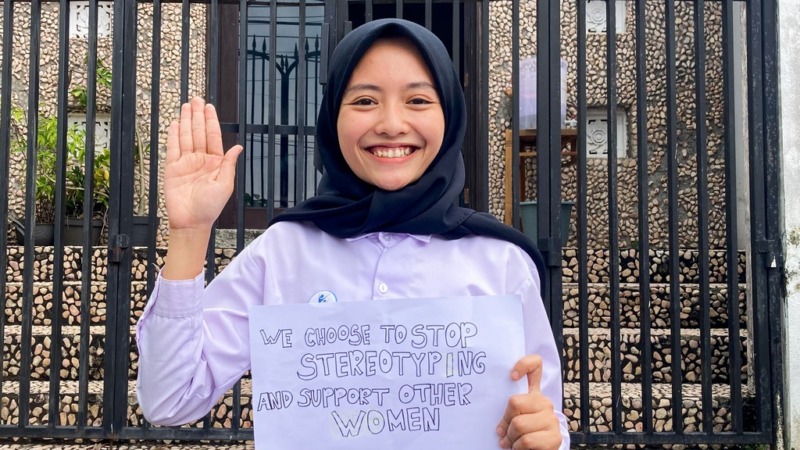 WE CHOOSE TO STOP
STEREOTYPING
AND SUPPORT OTHER
WOMEN